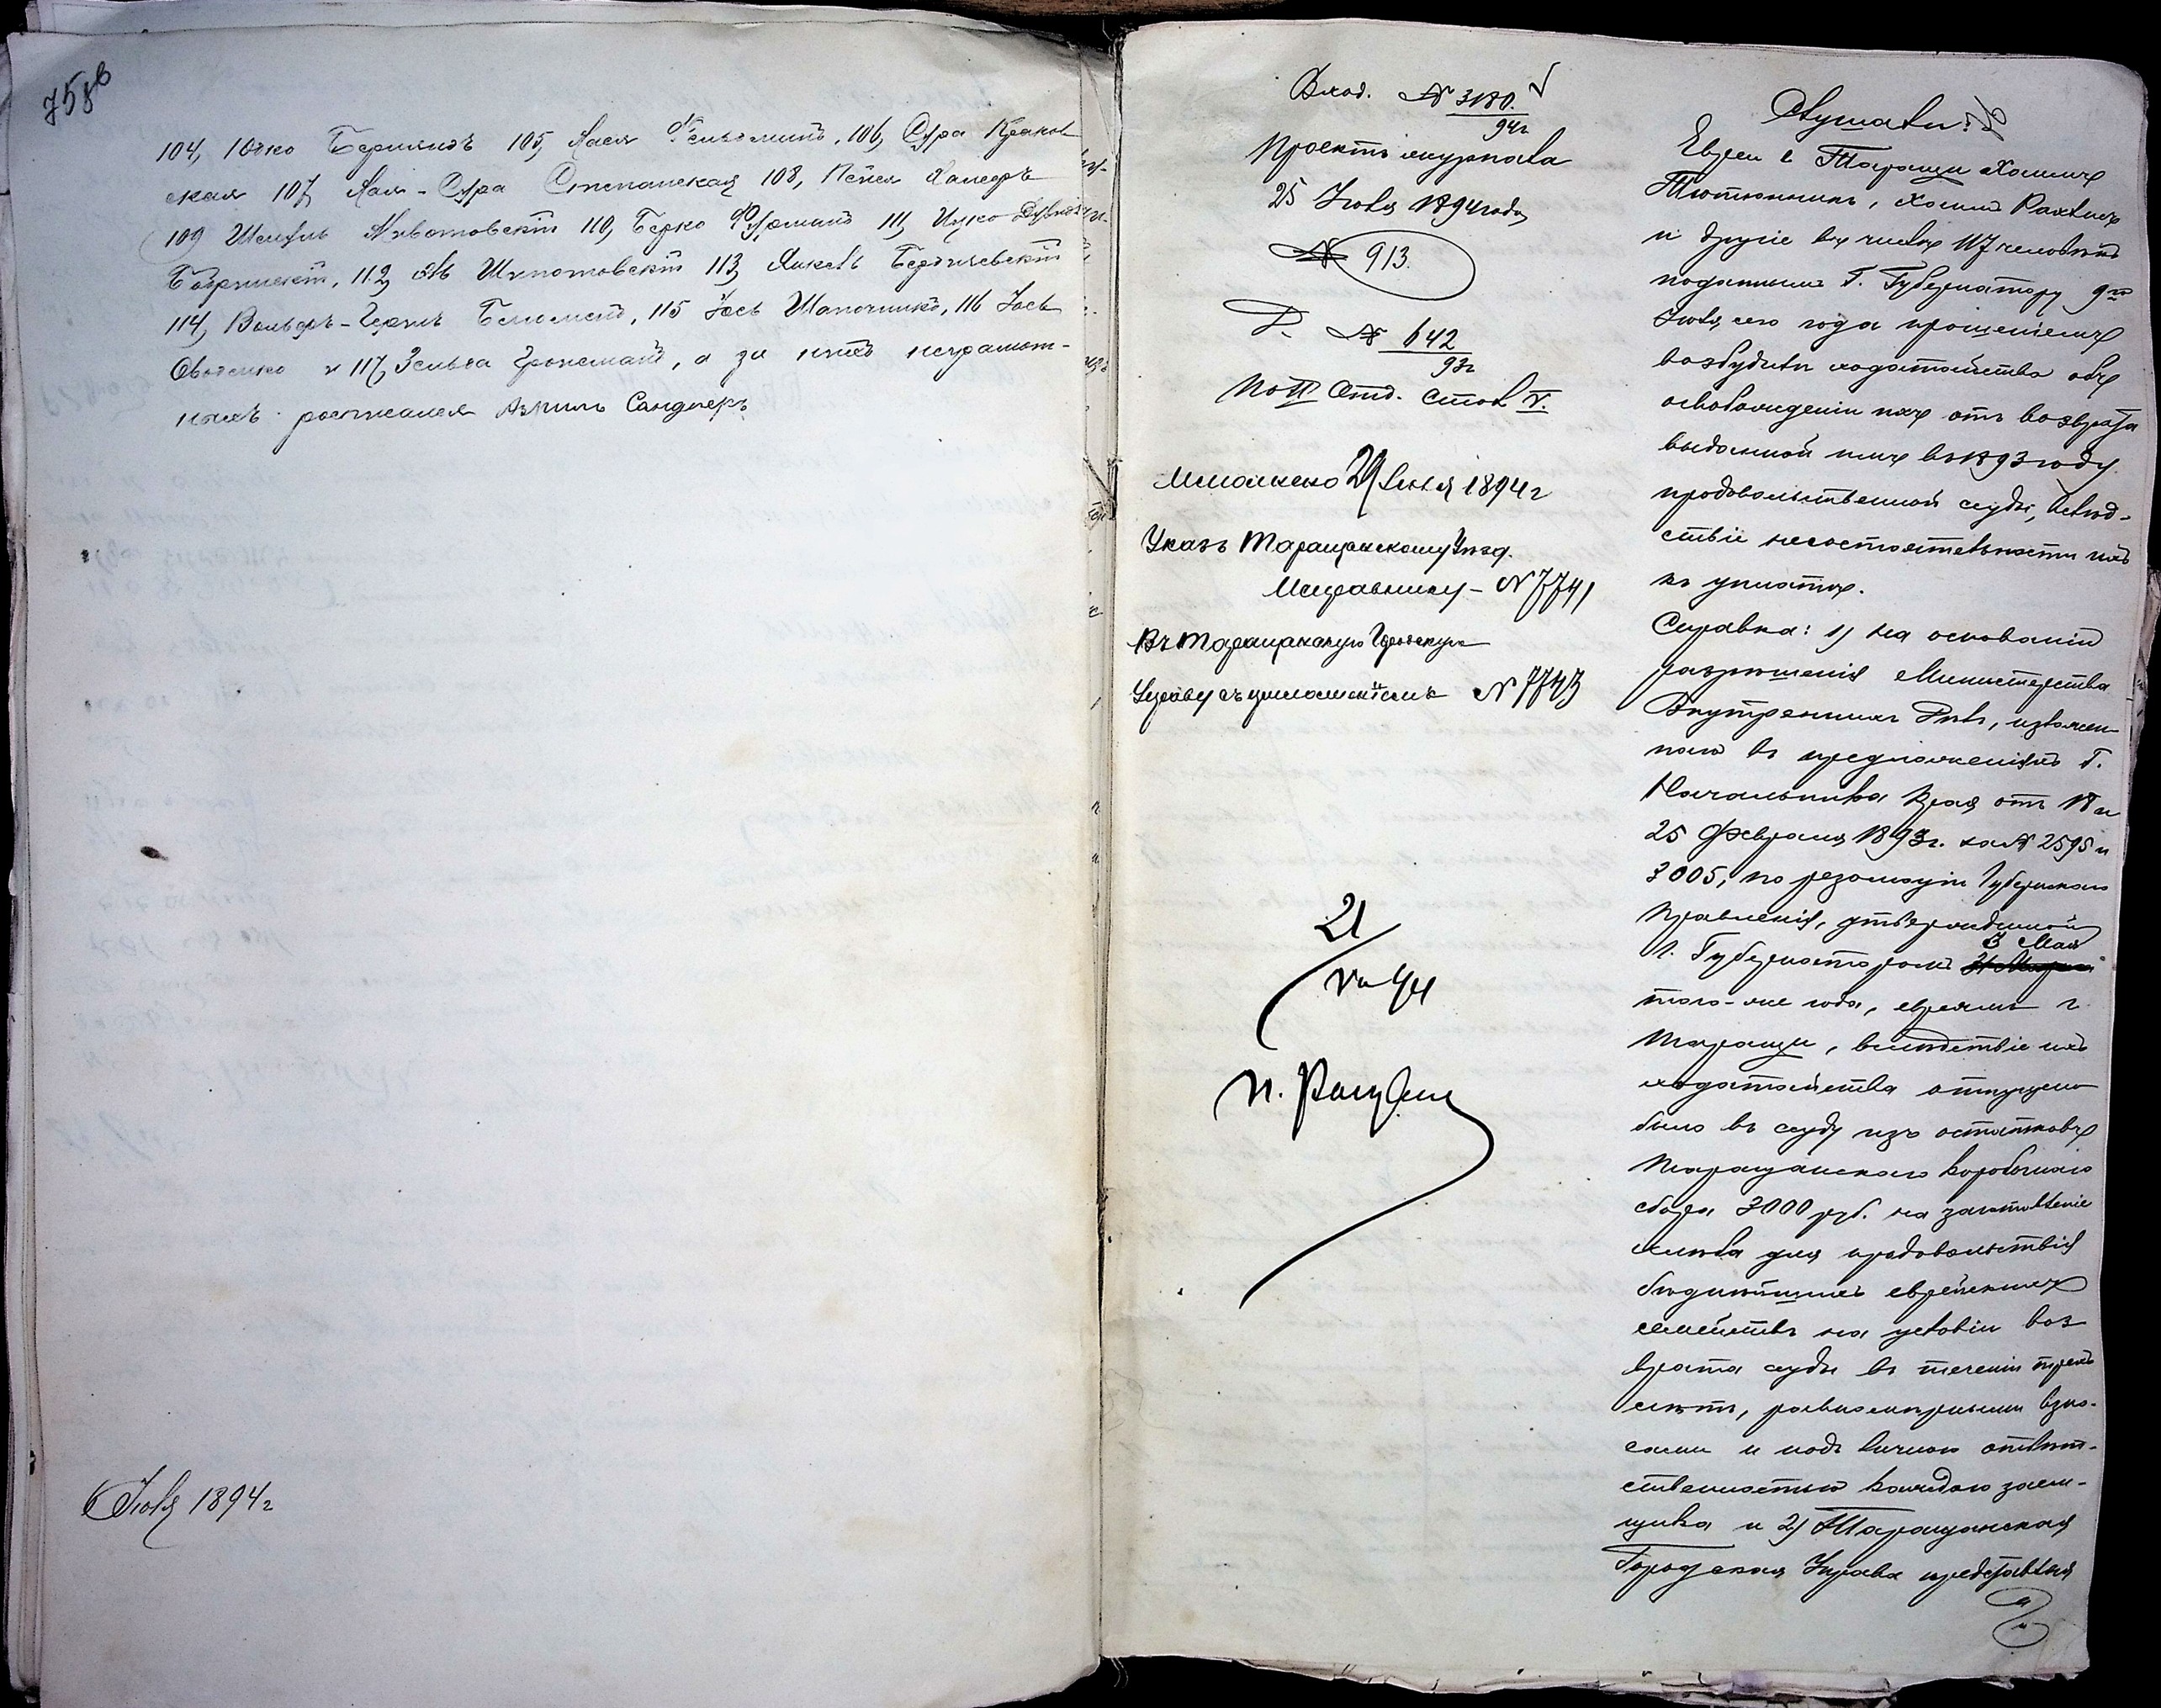 758б
104, Юдко Берштидъ 105, Хася Фельдманъ, 106, Сура Краков
ская 107, Хая-Сура Степанская 108, Пейся
109 Животовскій 110, Берко Фурманъ 111, Ицко
112, Шкповскій 113, Янкель Бердичевскій
114, Вольфъ-Гершъ 115 Іось Шапочникъ, 116 Іось
Овденко и 117, Зельда Гройсманъ, а за нихъ неграмот-
ныхъ росписался Азриль Сандлеръ
6 Іюля 1894 г
Вход. № 3180.
94 г
Проектъ журнала
25 Іюля 1894 года
№ 913.
Д. № 642
93 г
по II Отд. Стол V.
Исполнено 29 Іюля 1894 г
Указъ Таращанскому Уѣзд.
Исправнику - № 7741
Въ Таращанскую Городскую
Управу съ приложеніемъ № 7743
21
94
Слушали:
Евреи г. Таращи Хаимъ
Тютюнникъ, Хаимъ
и другіе въ числѣ 117 человѣкъ
поданнымъ Г. Губернатору 9го
Іюля сего года прошеніемъ
возбудили ходатайство объ
освобожденіи ихъ отъ возврата
выданной имъ въ 1893 году
продовольственной ссуды, вслѣд-
ствіе несостоятельности ихъ
къ уплатѣ.
Справка: 1) на основаніи
разрѣшенія Министерства
Внутреннихъ Дѣлъ, изложен-
наго въ предложеніяхъ Г.
Начальника Края отъ 18 и
25 Февраля 1893 г. за № 2595 и
3005, по резолюціи Губернскаго
Правленія, утвержденной
Г. Губернаторомъ 3 Мая
того-же года, евреямъ г.
Таращи, вслѣдствіе ихъ
ходатайства отпущено
было въ ссуду изъ остатковъ
Таращанскаго коробочнаго
сбора 3000 руб. на заготовленіе
хлѣба для продовольствія
бѣднѣйшихъ еврейскихъ
семействъ на условіи воз
врата ссуды въ теченіи трехъ
лѣтъ, равномѣрными взно-
сами и подъ личною отвѣт-
ственностью каждаго заем-
щика и 2) Таращанская
Городская Управа представляя